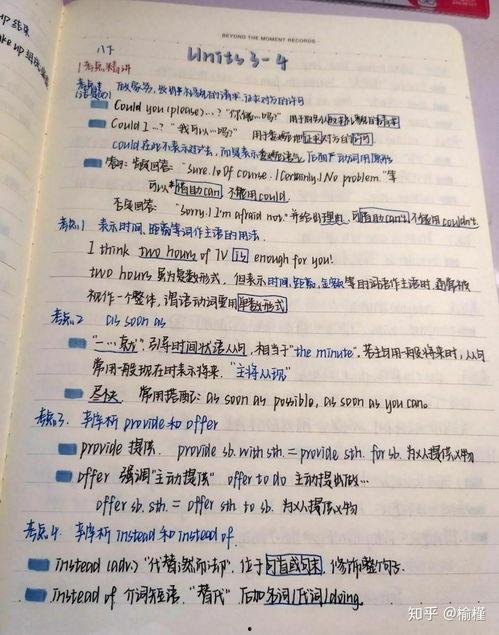 BEYOND THE MOMENT RECORDS
up 结束
八下
Units 3-4
考点精讲
Could you (please) ...? "你能...吗?" 用于
Could I ...? "我可以...吗?" 用于委婉地征求对方的许可
could在此不表示过去, 而是表示委婉语气, 后面产动词用原形
答语: 肯定回答: "Sure. / Of course. / Certainly. / No problem." 等
可以*借助can, 不能用could.
否定回答: "Sorry. / I'm afraid not." 并给出理由, 可借助can't, 不能用couldn't.
考点1 表示时间、距离等词作主语的用法.
I think two hours of TV is enough for you!
two hours 虽为复数形式, 但表示时间、距离、金额等的词语作主语时, 通常被
视作一个整体, 谓语动词要用单数形式
考点2 as soon as
"一...就", 引导时间状语从句, 相当于"the minute". 若主句用一般将来时, 从句
常用一般现在时表示将来. "主将从现"
尽快. 常用搭配: as soon as possible, as soon as you can.
考点3. 辛析 provide 和 offer
provide 提供. provide sb. with sth. = provide sth. for sb. 为某人提供某物
offer 强调"主动提供" offer to do 主动提出做...
offer sb. sth. = offer sth. to sb. 为某人提供某物
考点4. 辛析 instead 和 instead of.
instead (adv.) "代替; 然而; 却". 位于句首或句末, 修饰整个句子.
instead of 介词短语. "替代" 后加名词/代词/doing.
知乎 @榆槿